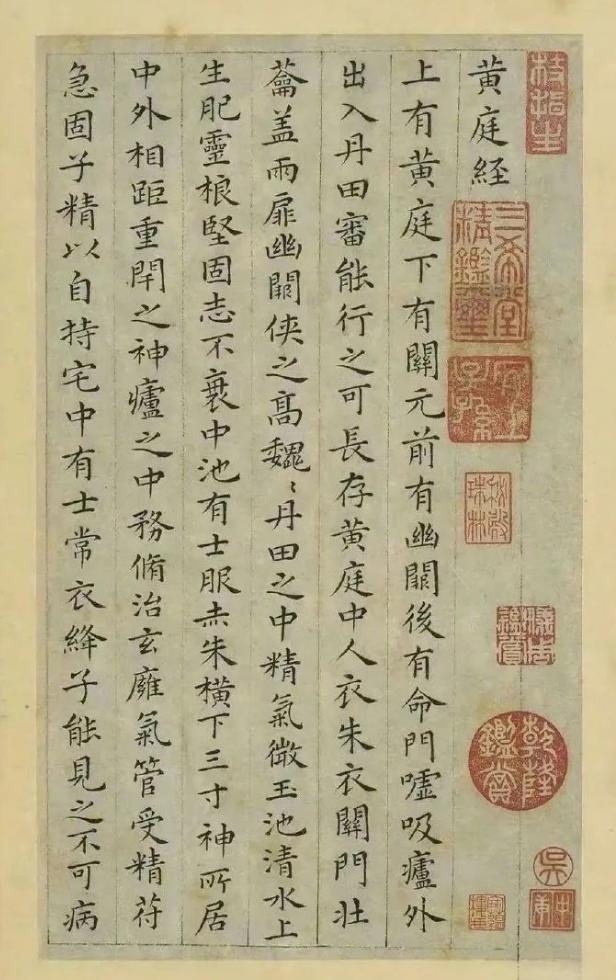 黄庭経
上有黄庭下有關元前有幽闕後有命門嘘吸廬外
出入丹田審能行之可長存黄庭中人衣朱衣關門壯
蘥盖兩扉幽闕俠之高巍〻丹田之中精氣微玉池清水上
生肥靈根堅固志不衰中池有士服赤朱橫下三寸神所居
中外相距重閇之神廬之中務脩治玄癰氣管受精苻
急固子精以自持宅中有士常衣絳子能見之不可病
三希堂精鑑璽
宜子孫
石渠寶笈
乾隆鑑賞
吴